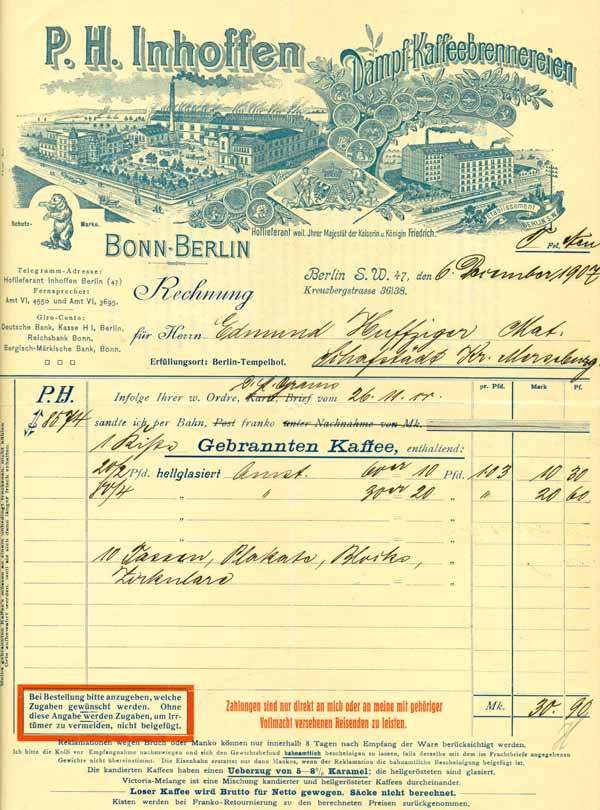 P. H. Inhoffen
Dampf-Kaffeebrennereien
Etablissement BERLIN S.W.
Schutz-Marke.
Hoflieferant weil. Ihrer Majestät der Kaiserin u. Königin Friedrich.
BONN-BERLIN
Fol.
Telegramm-Adresse:
Hoflieferant Inhoffen Berlin (47)
Fernsprecher:
Amt VI, 4550 und Amt VI, 3695.
Giro-Conto:
Deutsche Bank, Kasse H I, Berlin.
Reichsbank Bonn.
Bergisch-Märkische Bank, Bonn.
Berlin S. W. 47, den 6 December 1907
Kreuzbergstrasse 36|38.
Rechnung
für Herrn Edmund Huffziger Mat.
Erfüllungsort: Berlin-Tempelhof. Schafstädt Kr. Merseburg
P.H. Infolge Ihrer w. Ordre, Karte, Brief vom 26. 11. cr. pr. Pfd. Mark Pf.
8574 sandte ich per Bahn, Post franko unter Nachnahme von Mk.
1 Kiste Gebrannten Kaffee, enthaltend:
20/2 Pfd. hellglasiert 60er 10 Pfd. 103 10 30
80/4 " " 30er 20 " " 20 60
" " "
" " "
10 Tassen, Plakate, Blocks,
Zirkulare
Bei Bestellung bitte anzugeben, welche
Zugaben gewünscht werden. Ohne
diese Angabe werden Zugaben, um Irr-
tümer zu vermeiden, nicht beigefügt.
Zahlungen sind nur direkt an mich oder an meine mit gehöriger
Vollmacht versehenen Reisenden zu leisten.
Mk. 30. 90
Reklamationen wegen Bruch oder Manko können nur innerhalb 8 Tagen nach Empfang der Ware berücksichtigt werden.
Ich bitte die Kolli vor Empfangnahme nachzuwiegen und sich den Gewichtsbefund bahnamtlich bescheinigen zu lassen, falls derselbe mit dem im Frachtbriefe angegebenen
Gewichte nicht übereinstimmt. Die Eisenbahn erstattet nur dann Mankos, wenn der Reklamation die bahnamtliche Bescheinigung beigefügt ist.
Die kandierten Kaffees haben einen Ueberzug von 5—8% Karamel; die hellgerösteten sind glasiert.
Victoria-Melange ist eine Mischung kandierter und hellgerösteter Kaffees durcheinander.
Loser Kaffee wird Brutto für Netto gewogen. Säcke nicht berechnet.
Kisten werden bei Franko-Retournierung zu den berechneten Preisen zurückgenommen.